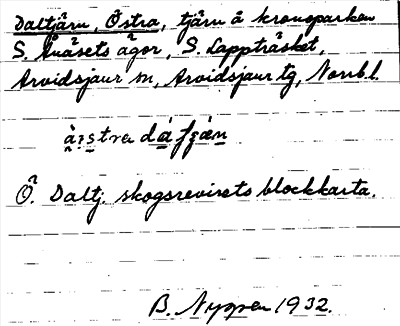 Daltjärn, Östra, tjärn å kronoparken
S. Avasets ägor, S. Lappträsket,
Arvidsjaur sn, Arvidsjaur tg, Norrb. l.
Ö. Daltj. skogsrevirets blockkarta.
B. Nygren 1932.